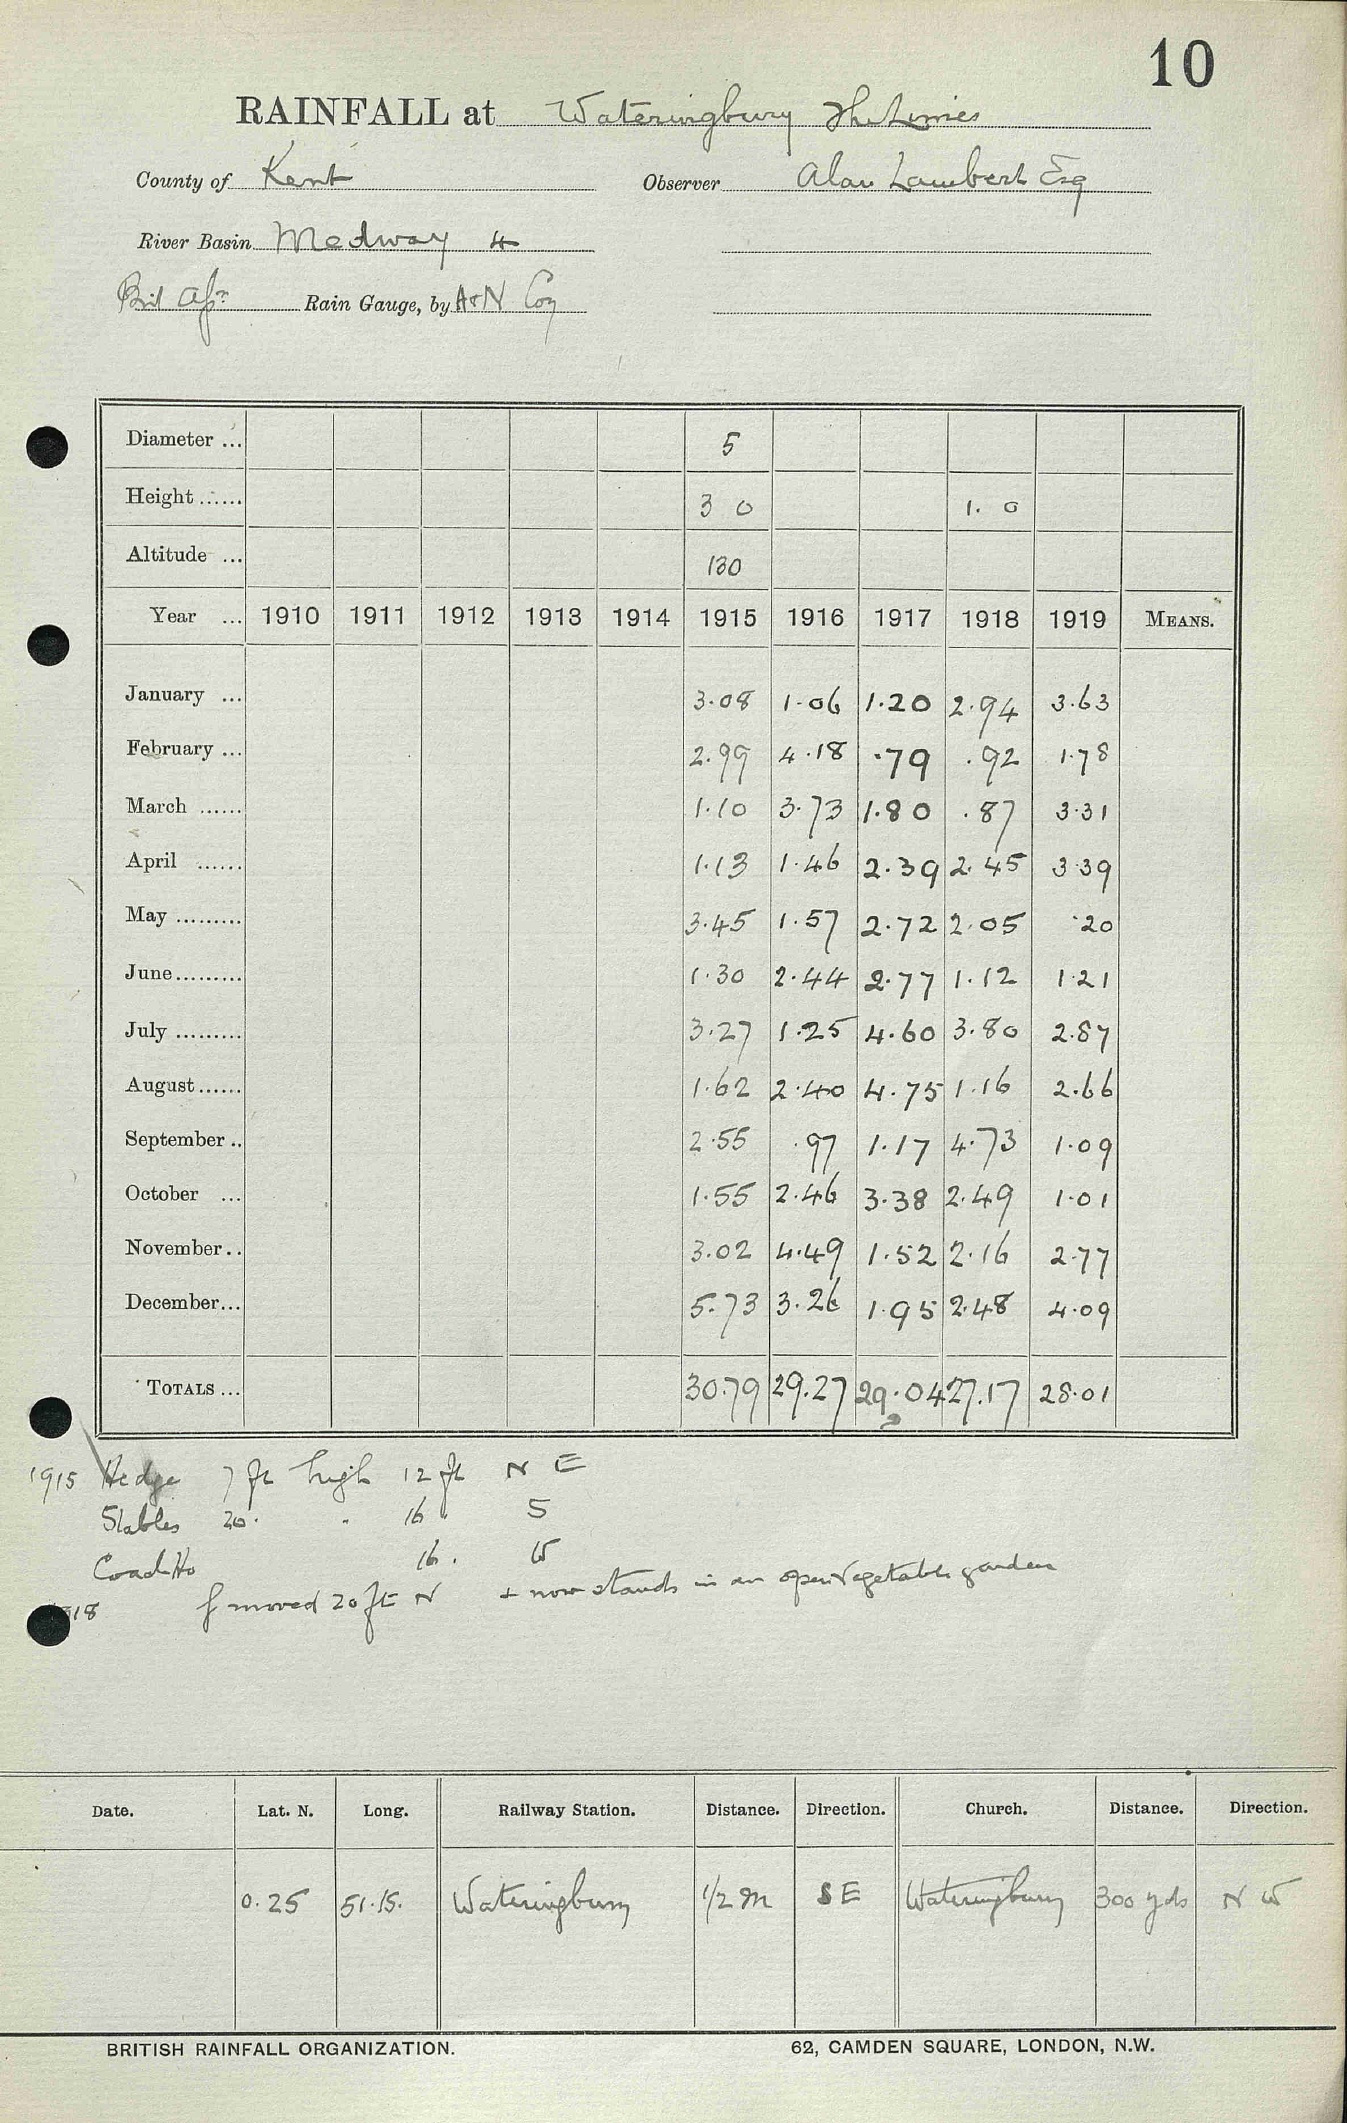 10
RAINFALL at Wateringbury The Limes
County of Kent Observer Alan Lambert Esq
River Basin Medway 4
Rain Gauge, by A+N Coy
Diameter ... 5
Height ...... 3 0 1. 0
Altitude ... 130
Year ... 1910 1911 1912 1913 1914 1915 1916 1917 1918 1919 MEANS.
January ... 3.08 1.06 1.20 2.94 3.63
February ... 2.99 4.18 .79 .92 1.78
March ...... 1.10 3.73 1.80 .87 3.31
April ...... 1.13 1.46 2.39 2.45 3.39
May ......... 3.45 1.57 2.72 2.05 .20
June ......... 1.30 2.44 2.77 1.12 1.21
July ......... 3.27 1.25 4.60 3.80 2.87
August ...... 1.62 2.40 4.75 1.16 2.66
September .. 2.55 .97 1.17 4.73 1.09
October ... 1.55 2.46 3.38 2.49 1.01
November .. 3.02 4.49 1.52 2.16 2.77
December ... 5.73 3.26 1.95 2.48 4.09
TOTALS ... 30.79 29.27 29.04 27.17 28.01
1915 Hedge 7 ft high 12 ft N E
Stables 20 " 16 " S
Coach Ho 16 . W
18 moved 20 ft N + now stands in an open vegetable garden
Date. Lat. N. Long. Railway Station. Distance. Direction. Church. Distance. Direction.
0.25 51.15. Wateringbury 1/2 m S E Wateringbury 300 yds N W
BRITISH RAINFALL ORGANIZATION. 62, CAMDEN SQUARE, LONDON, N.W.